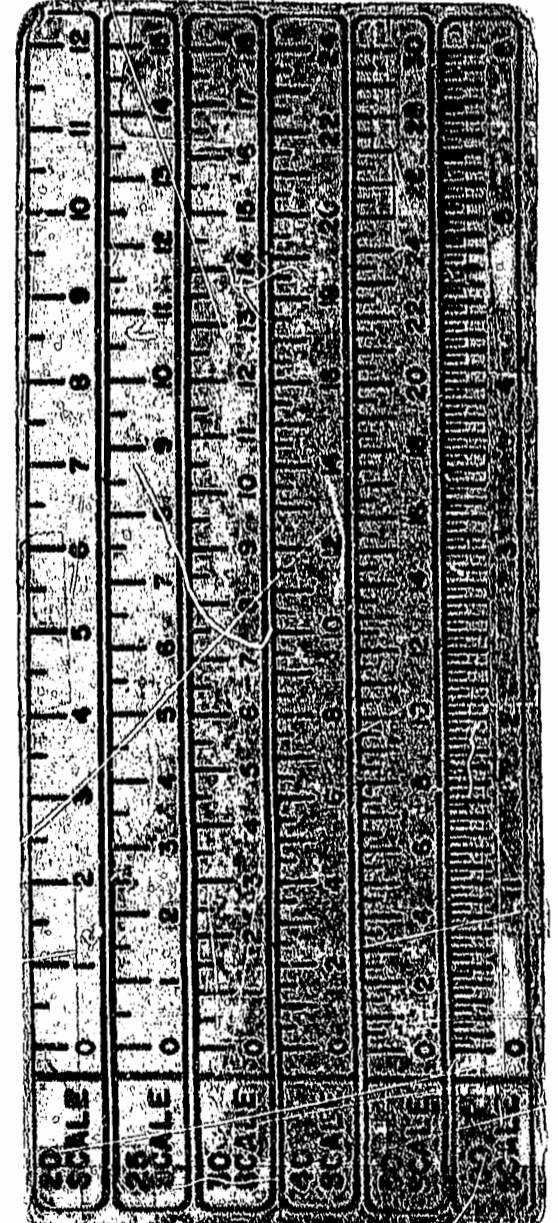 20 SCALE 0 1 2 3 4 5 6 7 8 9 10 11 12
25 SCALE 0 1 2 3 4 5 6 7 8 9 10 11 12 13 14 15
SCALE 0 2 4 5 6 7 9 10 11 12 13 14 15 16 17 18
40 SCALE 0 2 4 6 8 10 12 14 18 20 22 24
SCALE 0 2 4 6 8 12 14 16 18 20 22 24 28 30
SCALE 0 1 2 3 4 5 6